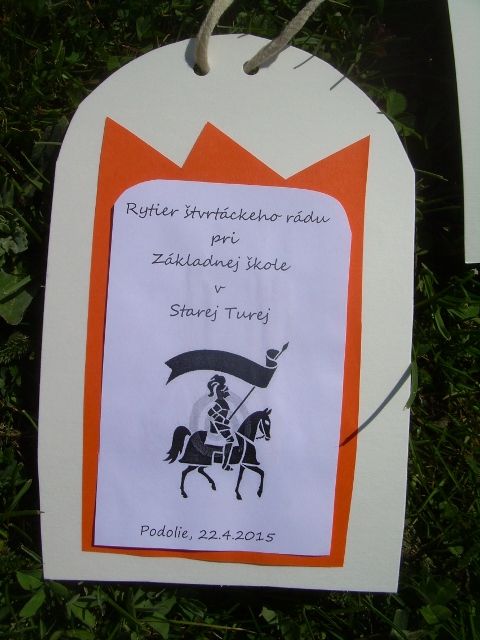 Rytier štvrtáckeho rádu
pri
Základnej škole
v
Starej Turej
Podolie, 22.4.2015